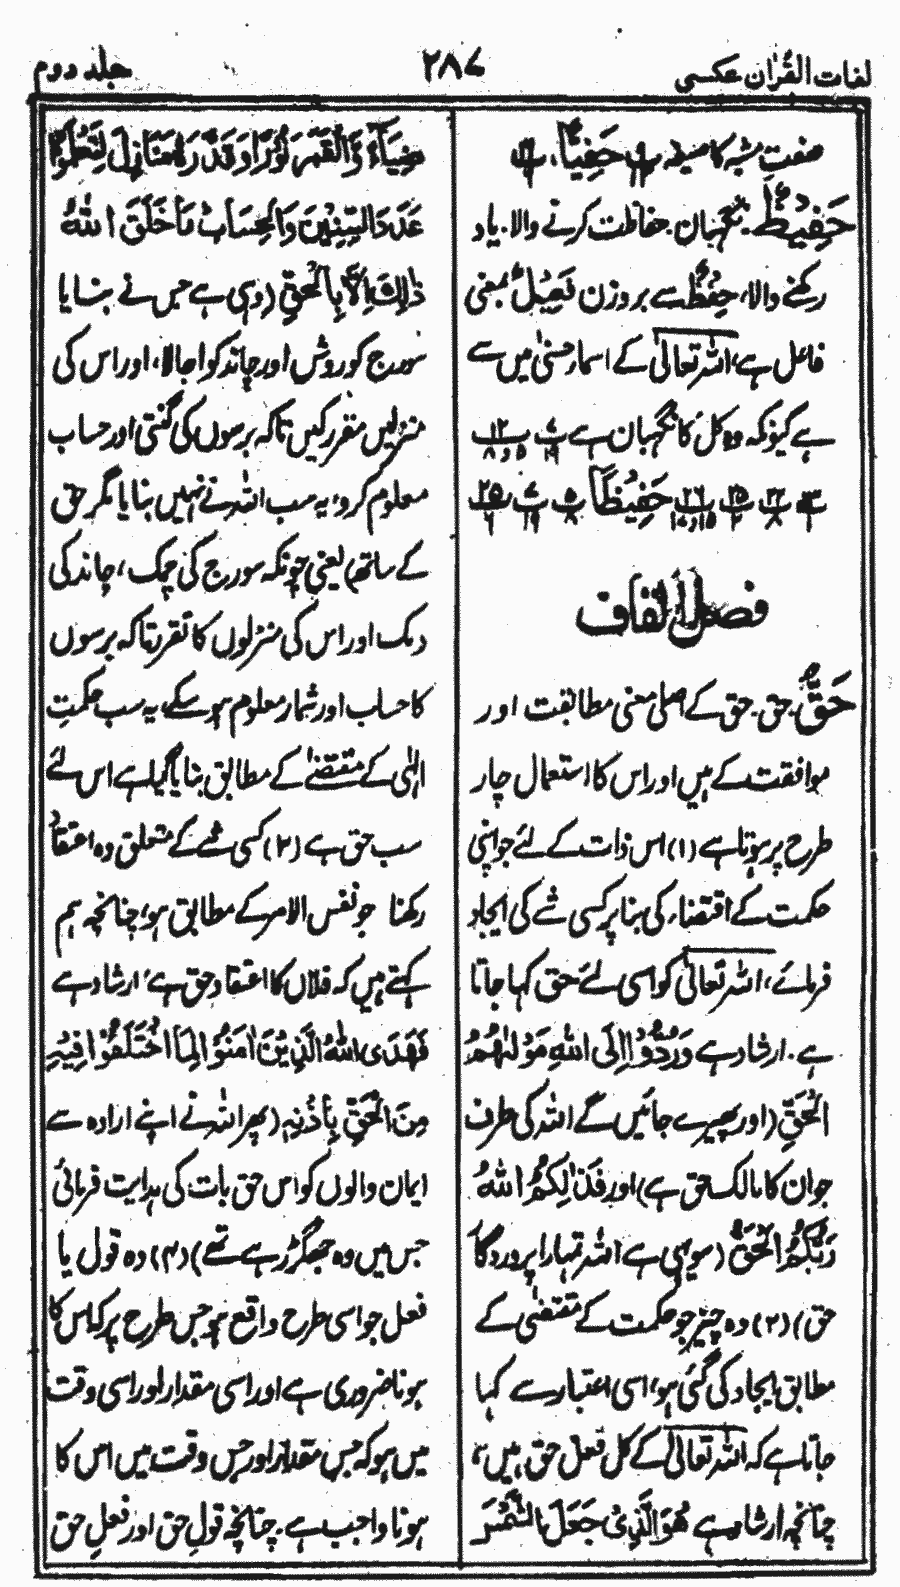 لغات القرآن عکسی
۲۸۷
جلد دوم
صفت مشبہ کا صیغہ حَفِیًّا،
حَفِیْظٌ۔ نگہبان۔ حفاظت کرنے والا۔ یاد
رکھنے والا، حِفْظٌ سے بروزن فَعِیْلٌ بمعنی
فاعل ہے، اللہ تعالیٰ کے اسماء حسنیٰ میں سے
ہے کیونکہ وہ کل کا نگہبان ہے
حَفِیْظًا
فصل القاف
حَقٌّ۔ حق۔ حق کے اصلی معنی مطابقت اور
موافقت کے ہیں اور اس کا استعمال چار
طرح پر ہوتا ہے (۱) اس ذات کے لئے جو اپنی
حکمت کے اقتضاء کی بنا پر کسی شے کی ایجاد
فرمائے، اللہ تعالیٰ کو اسی لئے حق کہا جاتا
ہے۔ ارشاد ہے وَرُدُّوْا اِلَی اللّٰہِ مَوْلٰىہُمُ
الْحَقِّ (اور پھیرے جائیں گے اللہ کی طرف
جو ان کا مالک حق ہے) اور فَذٰلِکُمُ اللّٰہُ
رَبُّکُمُ الْحَقُّ (سو یہی ہے اللہ تمہارا پروردگار
حق) (۲) وہ چیز جو حکمت کے مقتضیٰ کے
مطابق ایجاد کی گئی ہو، اسی اعتبار سے کہا
جاتا ہے کہ اللہ تعالیٰ کے کل فعل حق ہیں،
چنانچہ ارشاد ہے ہُوَ الَّذِیْ جَعَلَ الشَّمْسَ
ضِیَآءً وَّالْقَمَرَ نُوْرًا وَّقَدَّرَہٗ مَنَازِلَ لِتَعْلَمُوْا
عَدَدَ السِّنِیْنَ وَالْحِسَابَ مَا خَلَقَ اللّٰہُ
ذٰلِکَ اِلَّا بِالْحَقِّ (وہی ہے جس نے بنایا
سورج کو روشن اور چاند کو اجالا، اور اس کی
منزلیں مقرر کیں تاکہ برسوں کی گنتی اور حساب
معلوم کرو، یہ سب اللہ نے نہیں بنایا مگر حق
کے ساتھ) یعنی چونکہ سورج کی چمک، چاند کی
دمک اور اس کی منزلوں کا تقرر تاکہ برسوں
کا حساب اور شمار معلوم ہو سکے، یہ سب حکمتِ
الٰہی کے مقتضےٰ کے مطابق بنایا گیا ہے اس لئے
سب حق ہے (۳) کسی شے کے متعلق وہ اعتقاد
رکھنا جو نفس الامر کے مطابق ہو، چنانچہ ہم
کہتے ہیں کہ فلاں کا اعتقاد حق ہے، ارشاد ہے
فَہَدَی اللّٰہُ الَّذِیْنَ اٰمَنُوْا لِمَا اخْتَلَفُوْا فِیْہِ
مِنَ الْحَقِّ بِاِذْنِہٖ (پھر اللہ نے اپنے ارادہ سے
ایمان والوں کو اس حق بات کی ہدایت فرمائی
جس میں وہ جھگڑ رہے تھے) (۴) وہ قول یا
فعل جو اسی طرح واقع ہو جس طرح پر کہ اس کا
ہونا ضروری ہے اور اسی مقدار اور اسی وقت
میں ہو کہ جس مقدار اور جس وقت میں اس کا
ہونا واجب ہے۔ چنانچہ قولِ حق اور فعلِ حق